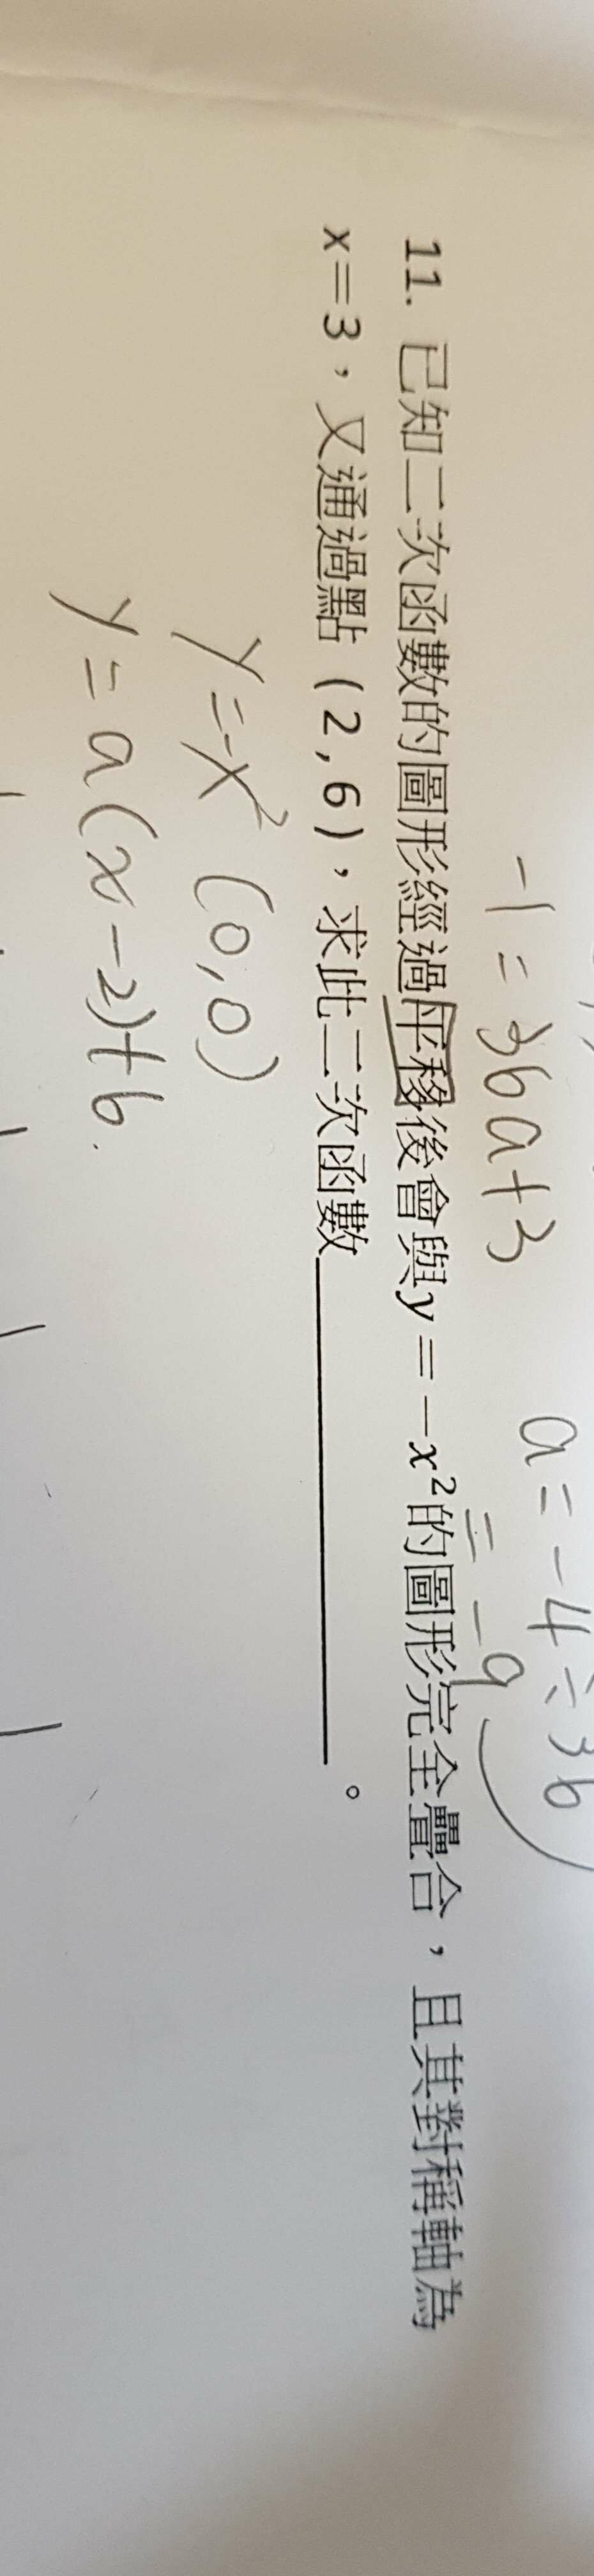 -1=36a+3
a=-4÷36
=-9
11. 已知二次函數的圖形經過平移後會與y=-x²的圖形完全疊合,且其對稱軸為
x=3,又通過點(2,6),求此二次函數。
y=-x² (0,0)
y=a(x-2)+6.